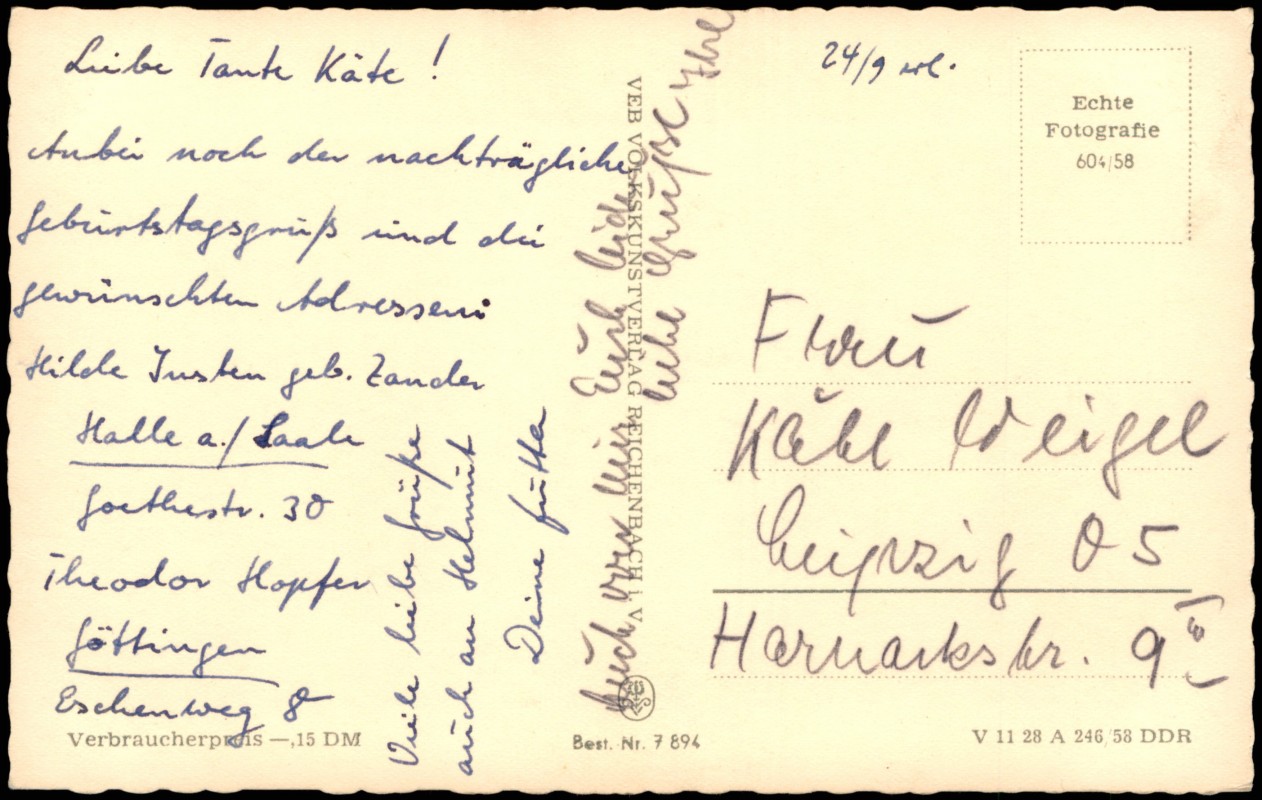 Liebe Tante Käte!
Anbei noch der nachträgliche
Geburtstagsgruß und die
gewünschten Adressen:
Hilde Insten geb. Zander
Halle a./Saale
Goethestr. 30
Theodor Hopfer
Göttingen
Eschenweg 8
Viele liebe Grüße
auch an Helmut
Deine Jutta
Auch von mir Euch beiden
liebe Grüße
24/9 erl.
Echte
Fotografie
604/58
Frau
Käte Weigel
Leipzig O 5
Harnackstr. 9 III
VEB VOLKSKUNSTVERLAG REICHENBACH i. V.
Verbraucherpreis —,15 DM
Best. Nr. 7 894
V 11 28 A 246/58 DDR